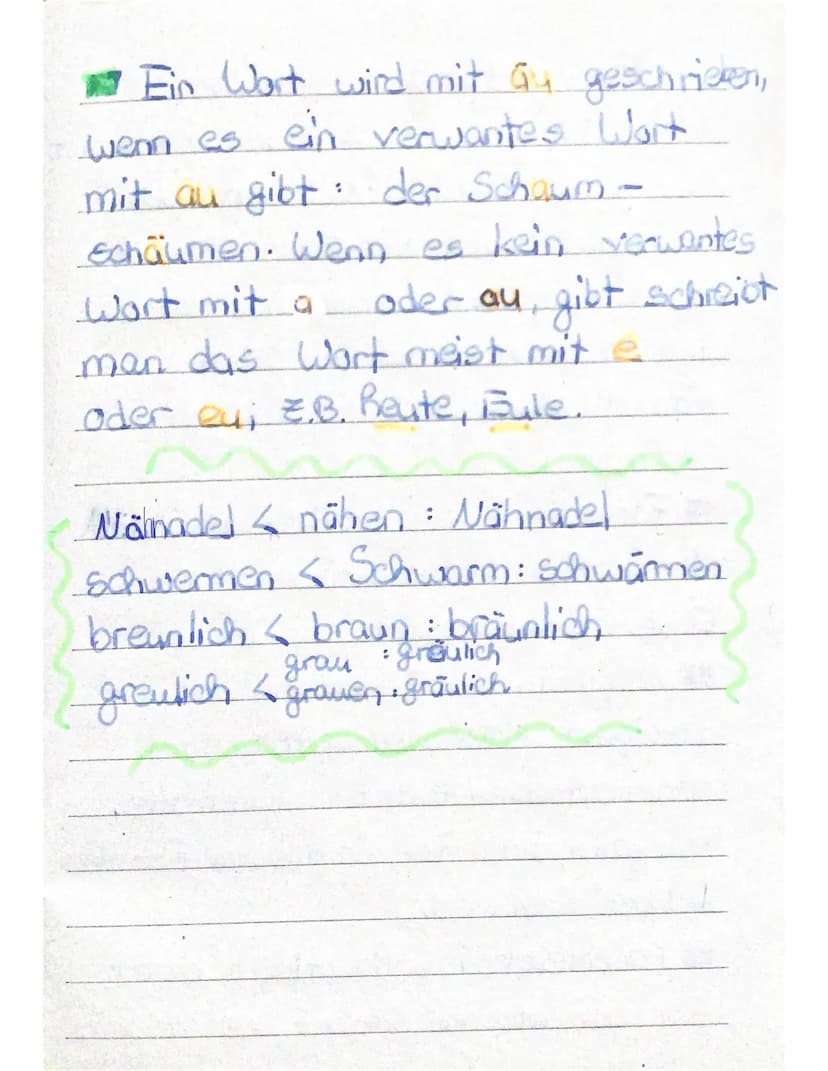 Ein Wort wird mit äu geschrieben,
wenn es ein verwantes Wort
mit au gibt: der Schaum -
schäumen. Wenn es kein verwantes
Wort mit a oder au, gibt schreibt
man das Wort meist mit e
oder eu; z.B. heute, Eule.
Nähnadel < nähen : Nähnadel
schwermen < Schwarm : schwärmen
breunlich < braun : bräunlich
grau : gräulich
greulich < grauen : gräulich